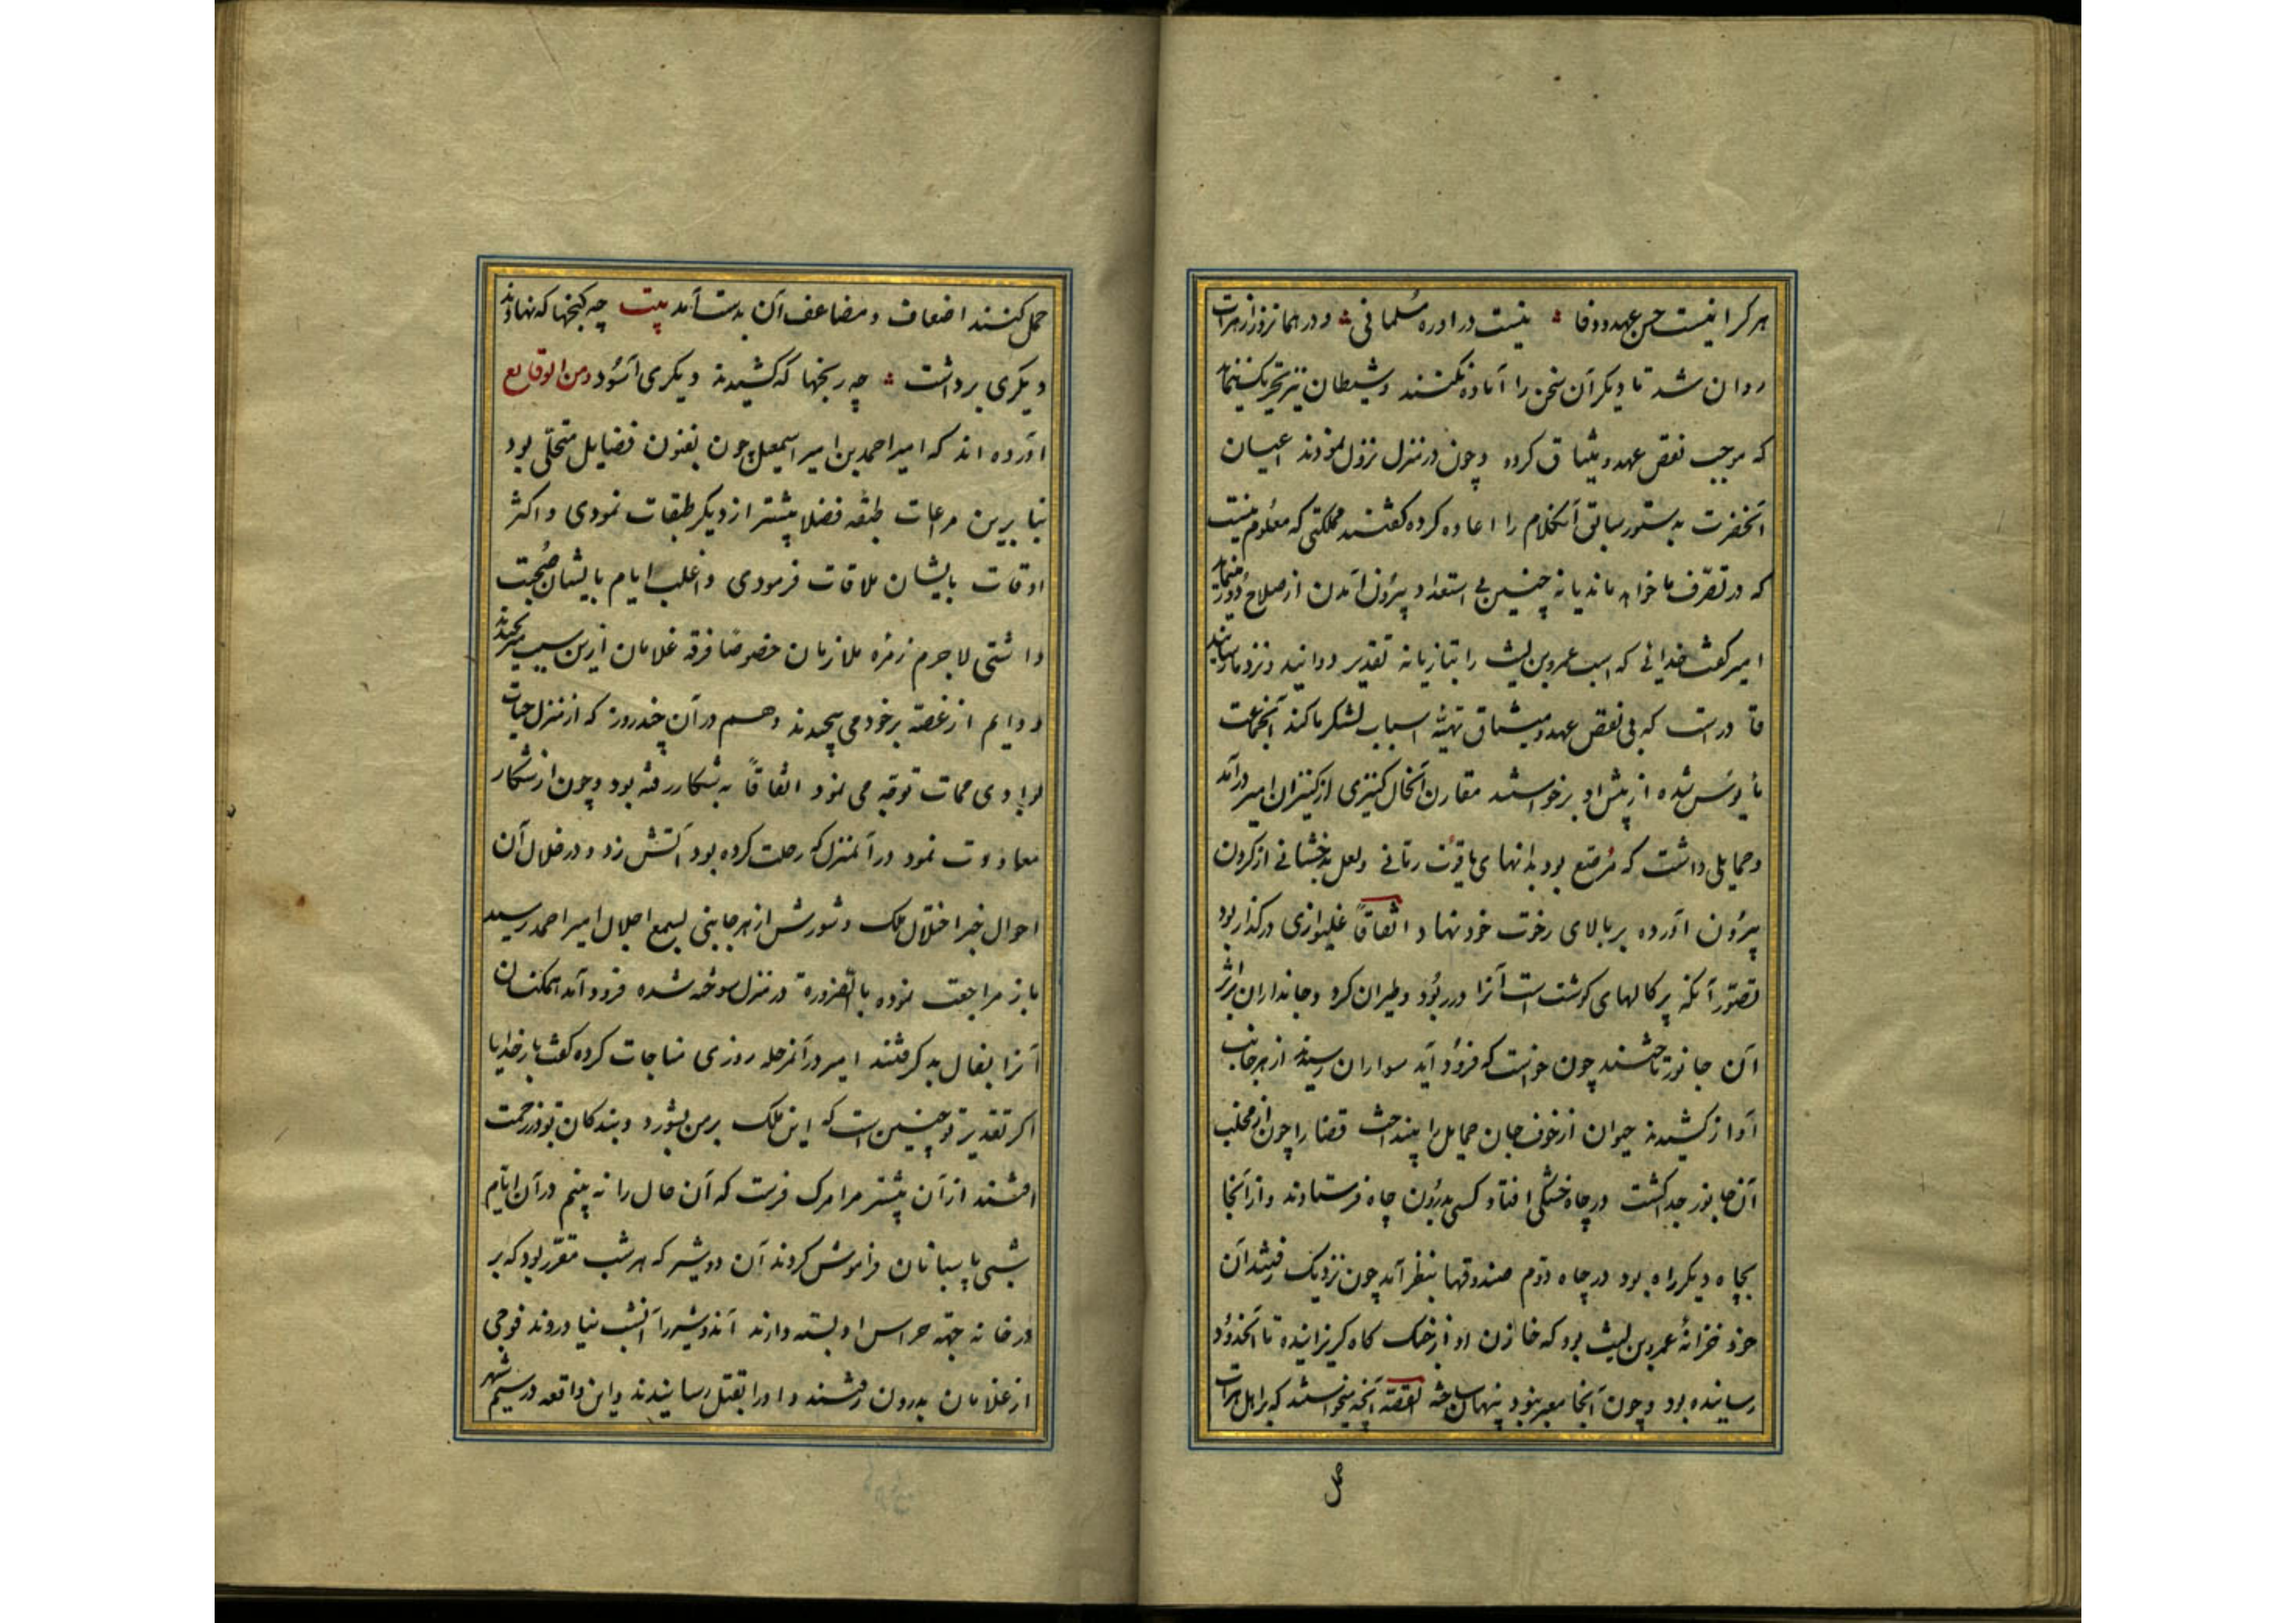 هر کرا نیست حسن عهد و وفا نیست در او ره مسلمانی و در همانروز از هرات
روان شد تا دیگر آن سخن را اعاده نکنند و شیطان نیز تحریک ننماید
که موجب نقض عهد و میثاق گردد و چون در منزل نزول نمودند اعیان
آنحضرت بدستور سابق آنکلام را اعاده کرده گفتند مملکتی که معلوم نیست
که در تصرف ما خواهد ماند یا نه چنین بی استعداد بیرون آمدن از صلاح دور مینماید
امیر گفت خدائی که اسب عمرو بن لیث را بتازیانه تقدیر دوانید و نزد ما رسانید
قادر است که بی نقض عهد و میثاق تهیّه اسباب لشکر ما کند آنجماعت
مأیوس شده از پیش او برخواستند مقارن آنحال کنیزی از کنیزان امیر درآمد
و حمایلی داشت که مرصّع بود بدانهای یاقوت رمّانی و لعل بدخشانی از گردن
بیرون آورده بر بالای رخوت خود نهاد اتفاقاً غلیوازی در گذار بود
تصوّر آنکه پرکالهای گوشت است آنرا در ربود و طیران کرد و جانداران بر اثر
آن جانور تاختند چون خواست که فرود آید سواران رسیدند از هر جانب
آواز کشیدند حیوان از خوف جان حمایل را بینداخت قضا را چون از مخلب
آن جانور جدا گشت در چاه خشکی افتاد کسی بدرون چاه فرستادند و از آنجا
بچاه دیگر راه بود در چاه دوّم صندوقها بنظر آمد چون نزدیک رفتند آن
خود خزانهٔ عمرو بن لیث بود که خازن او از جنگ گاه گریزانیده تا آنحدود
رسانیده بود و چون آنجا معبر نبود پنهان ساخته القصّه آنچه میخواستند که بر اهل هرات
حمل
حمل کنند اضعاف و مضاعف آن بدست آمد بیت چه گنجها که نهادند و
دیگری برداشت چه رنجها که کشیدند و دیگری آسود و من الوقایع
آورده اند که امیر احمد بن امیر اسمعیل چون بفنون فضایل متحلّی بود
بنابرین مراعات طبقه فضلا بیشتر از دیگر طبقات نمودی و اکثر
اوقات بایشان ملاقات فرمودی و اغلب ایام بایشان صحبت
داشتی لاجرم زمره ملازمان خصوصاً فرقه غلامان ازین سبب میرنجیدند
و دایم از غصّه بر خود می پیچیدند و هم در آن چند روز که از منزل حیات
بوادی ممات توجه می نمود اتفاقاً به شکار رفته بود و چون از شکار
معاودت نمود در آنمنزل که رحلت کرده بود آتش زد و در خلال آن
احوال خبر اختلال ملک و شورش از هر جانبی بسمع اجلال امیر احمد رسید
باز مراجعت نموده بالضرورة در منزل سوخته شده فرود آمد همکنان
آنرا بفال بد گرفتند امیر در آنمرحله روزی مناجات کرده گفت بار خدایا
اگر تقدیر تو چنین است که این ملک بر من بشورد و بندگان تو در زحمت
افتند از آن پیشتر مرا مرگ فرست که آن حال را نه بینم در آن ایّام
شبی پاسبانان فراموش کردند آن دو شیر که هر شب مقرّر بود که بر
در خانه جهته حراس او بسته دارند آندو شیر را آنشب نیاوردند فوجی
از غلامان بدرون رفتند و او را بقتل رسانیدند و این واقعه در سیم شهر